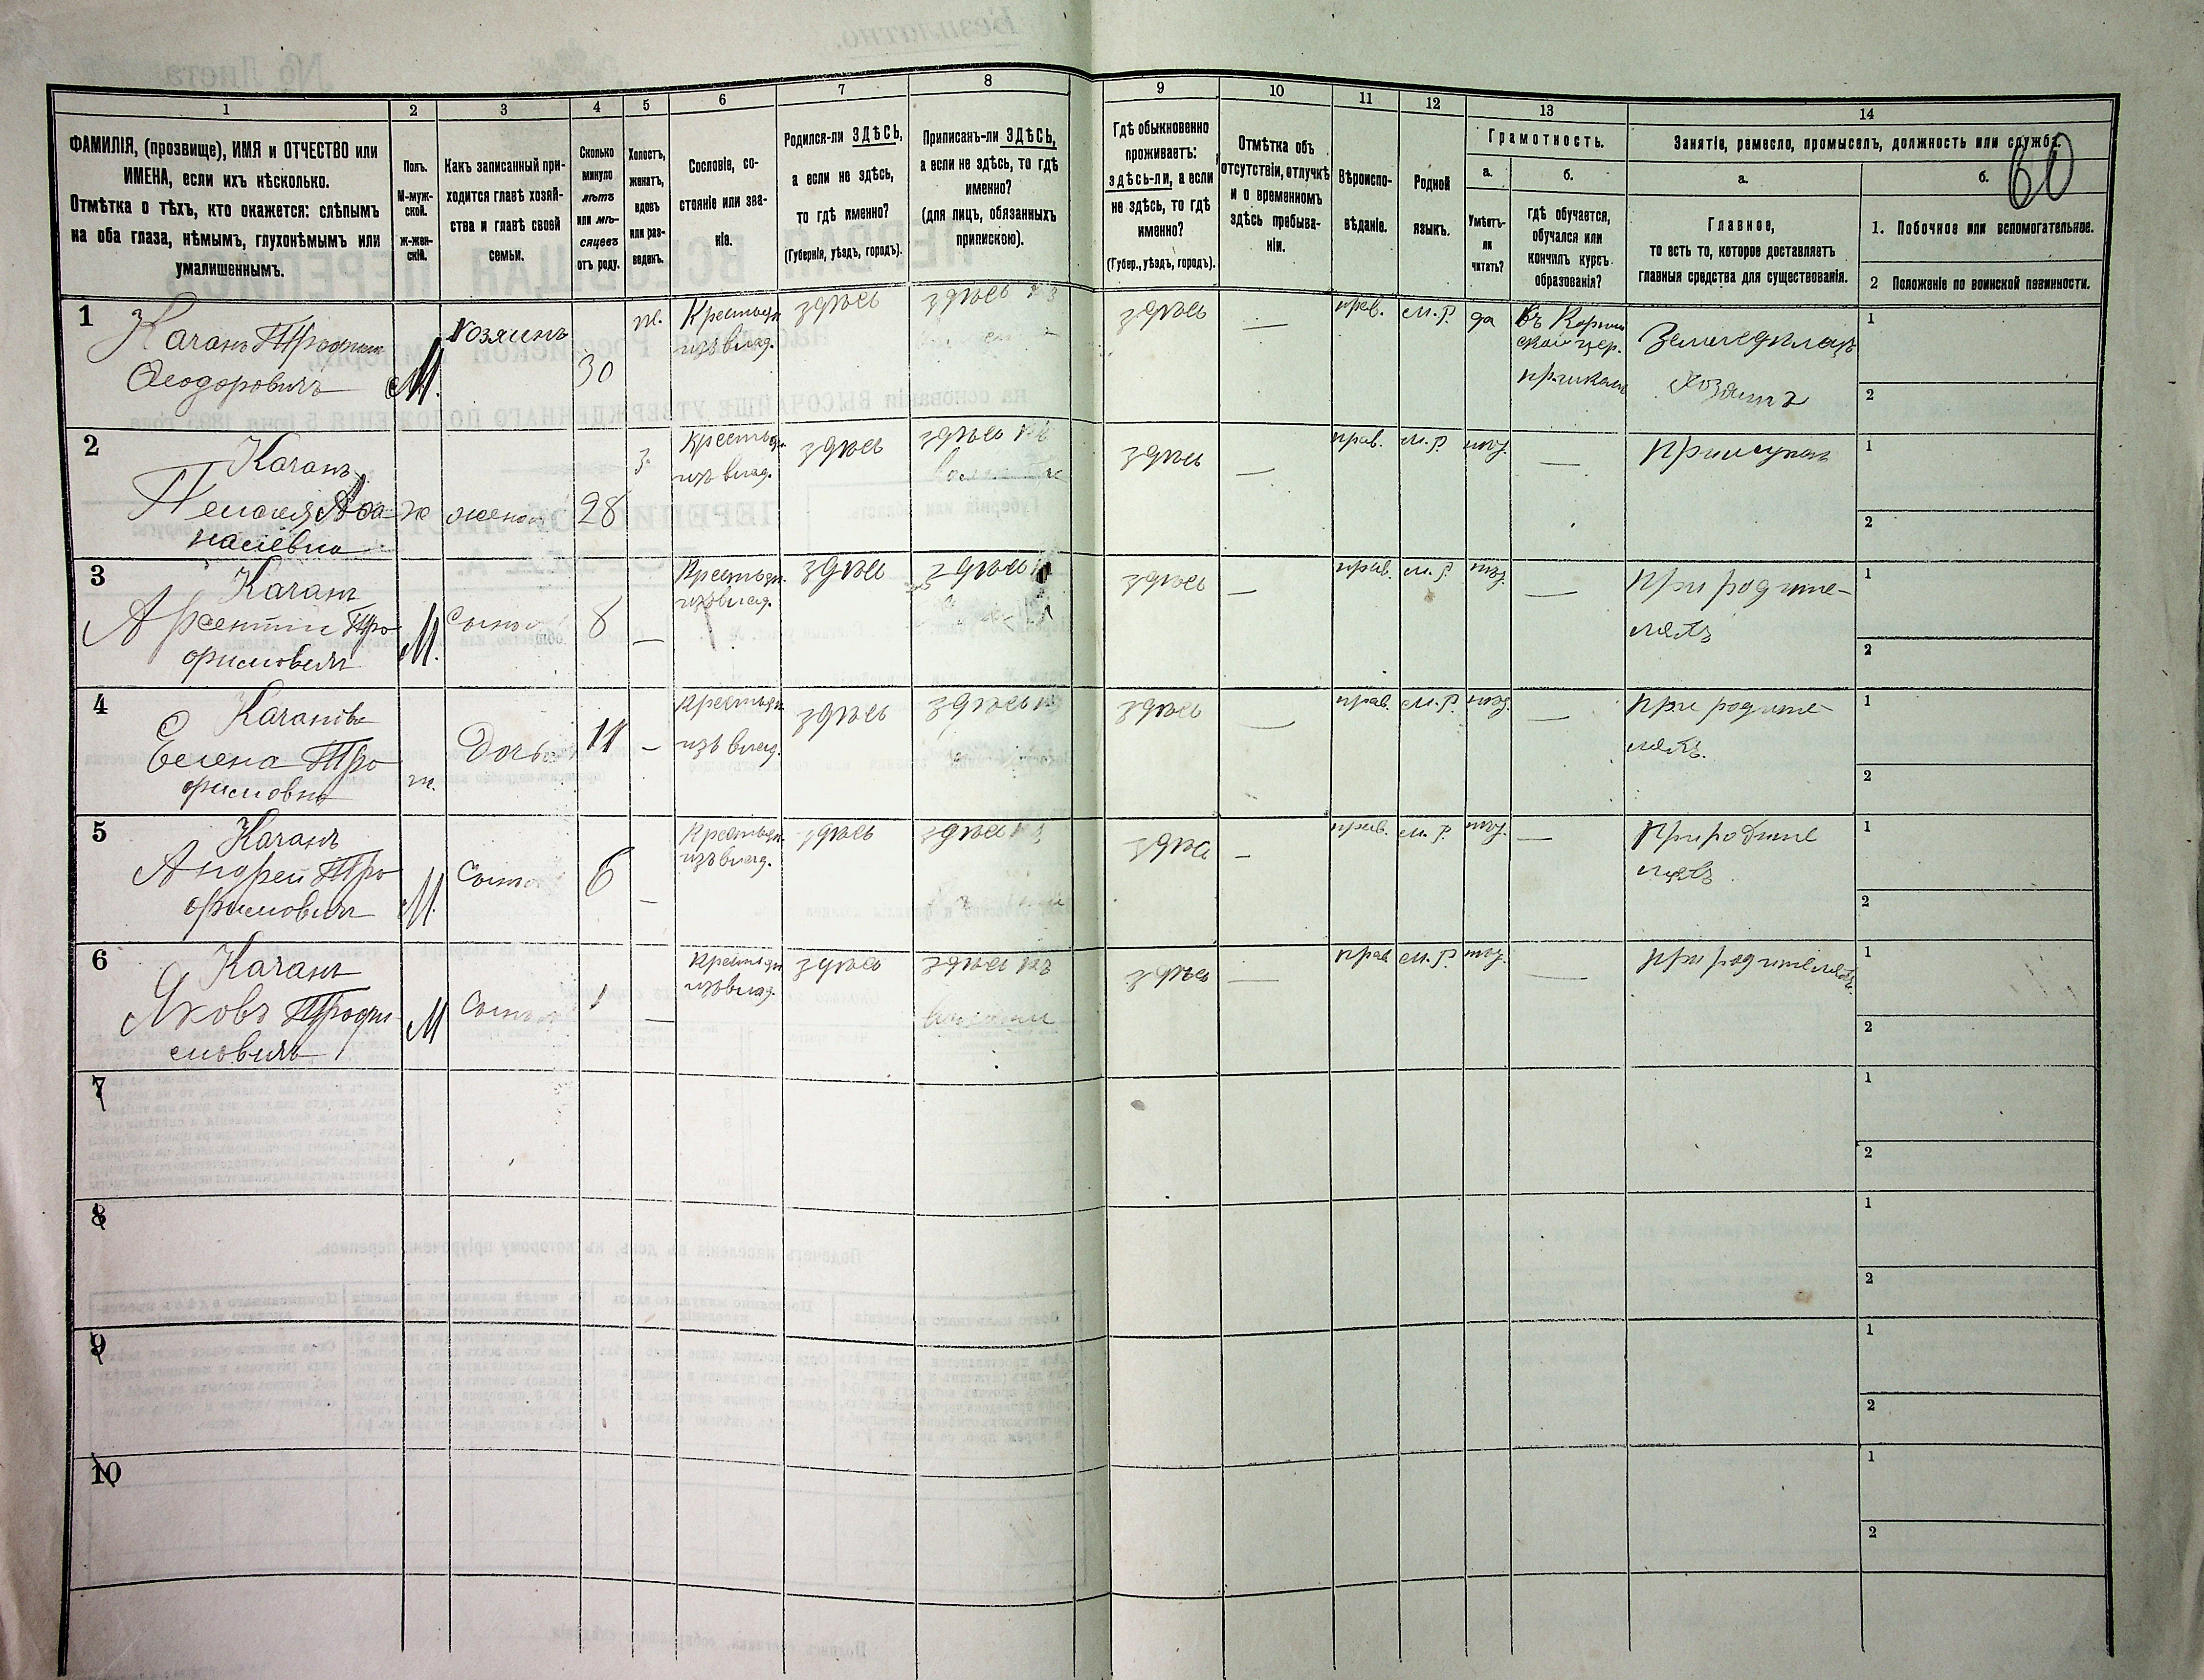 60
1 2 3 4 5 6 7 8 9 10 11 12 13 14
ФАМИЛІЯ, (прозвище), ИМЯ и ОТЧЕСТВО или
ИМЕНА, если ихъ нѣсколько.
Отмѣтка о тѣхъ, кто окажется: слѣпымъ
на оба глаза, нѣмымъ, глухонѣмымъ или
умалишеннымъ.
Полъ.
М-муж-
ской.
ж-жен-
скій.
Какъ записанный при-
ходится главѣ хозяй-
ства и главѣ своей
семьи.
Сколько
минуло
лѣтъ
или мѣ-
сяцевъ
отъ роду.
Холостъ,
женатъ,
вдовъ
или раз-
веденъ.
Сословіе, со-
стояніе или зва-
ніе.
Родился-ли ЗДѢСЬ,
а если не здѣсь,
то гдѣ именно?
(Губернія, уѣздъ, городъ).
Приписанъ-ли ЗДѢСЬ,
а если не здѣсь, то гдѣ
именно?
(для лицъ, обязанныхъ
припискою).
Гдѣ обыкновенно
проживаетъ:
здѣсь-ли, а если
не здѣсь, то гдѣ
именно?
(Губер., уѣздъ, городъ).
Отмѣтка объ
отсутствіи, отлучкѣ
и о временномъ
здѣсь пребыва-
ніи.
Вѣроиспо-
вѣданіе.
Родной
языкъ.
Грамотность.
а.
Умѣетъ-
ли
читать?
б.
гдѣ обучается,
обучался или
кончилъ курсъ
образованія?
Занятіе, ремесло, промыселъ, должность или служба.
а.
Главное,
то есть то, которое доставляетъ
главныя средства для существованія.
б.
1. Побочное или вспомогательное.
2 Положеніе по воинской повинности.
1
Качанъ Трофим
Ѳеодоровичъ
М.
Хозяинъ
30
ж.
Крестьян
изъ влад.
здѣсь
здѣсь
здѣсь
—
прав.
м.р.
да
въ
церк.
приход
Земледѣлец
Хозяинъ
1
2
2
Качанъ
Пелагея Афа
насіевна
ж
жена
28
з.
Крестьян.
изъ влад.
здѣсь
здѣсь
здѣсь
—
прав.
м.р.
—
при мужѣ
1
2
3
Качанъ
Арсентий Тро
фимовичъ
М.
Сынъ
8
—
Крестьян.
изъ влад.
здѣсь
здѣсь
здѣсь
—
прав.
м.р.
—
При родите-
ляхъ
1
2
4
Качанова
Елена Тро
фимовна
ж.
Дочь
11
—
Крестьян
изъ влад.
здѣсь
здѣсь
здѣсь
—
прав.
м.р.
—
при родите-
ляхъ.
1
2
5
Качанъ
Андрей Тро
фимовичъ
М.
Сынъ
6
—
Крестьян.
изъ влад.
здѣсь
здѣсь
здѣсь
—
прав.
м.р.
—
При родите
ляхъ
1
2
6
Качанъ
Яковъ Трофи
мовичъ
М
Сынъ
1
—
Крестьян
изъ влад.
здѣсь
здѣсь
здѣсь
—
прав
м.р.
—
при родителяхъ.
1
2
7
1
2
8
1
2
9
1
2
10
1
2